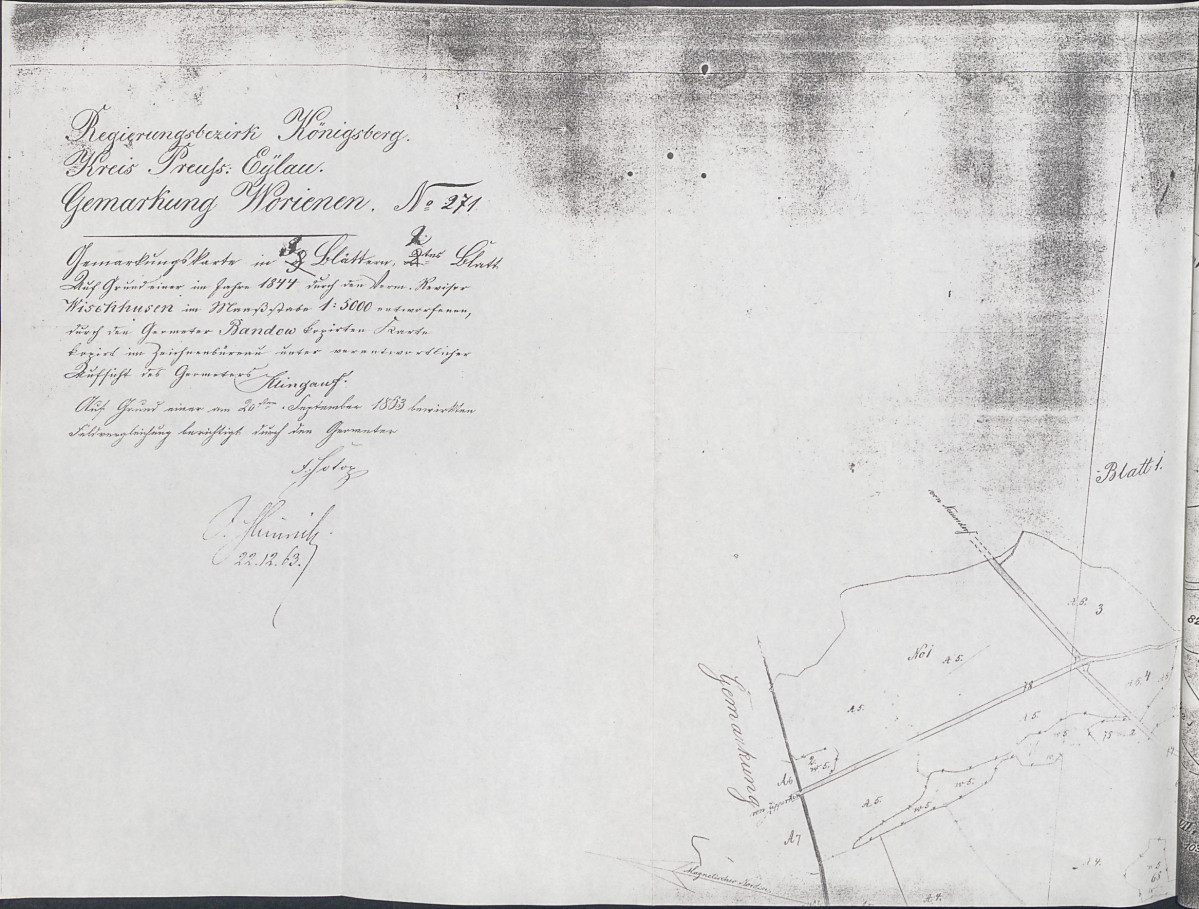 Regierungsbezirk Königsberg.
Kreis Preuss: Eylau.
Gemarkung Worienen. No 271
Gemarkungskarte in 3 Blättern, 2tes Blatt
Auf Grund einer im Jahre 1844 durch den Verm. Revisor
Wischhusen im Maaßstabe 1:5000 entworfenen,
durch den Geometer Bandow kopirten Karte
kopirt im Zeichnenbüreau unter verantwortlicher
Aufsicht des Geometers Klingauf.
Auf Grund einer am 20ten September 1883 bewirkten
Feldvergleichung berichtigt durch den Geometer
22.12.63.
Blatt 1.
A 5. 3
No 1 A 5.
78
A 5.
A 5. 4
A 5.
75 2
w 5.
2.
w 5.
A 6
Gemarkung
A 5.
w 5.
w 5.
A 7
Magnetischer Norden
A 4.
A. 4.
w 5.
65